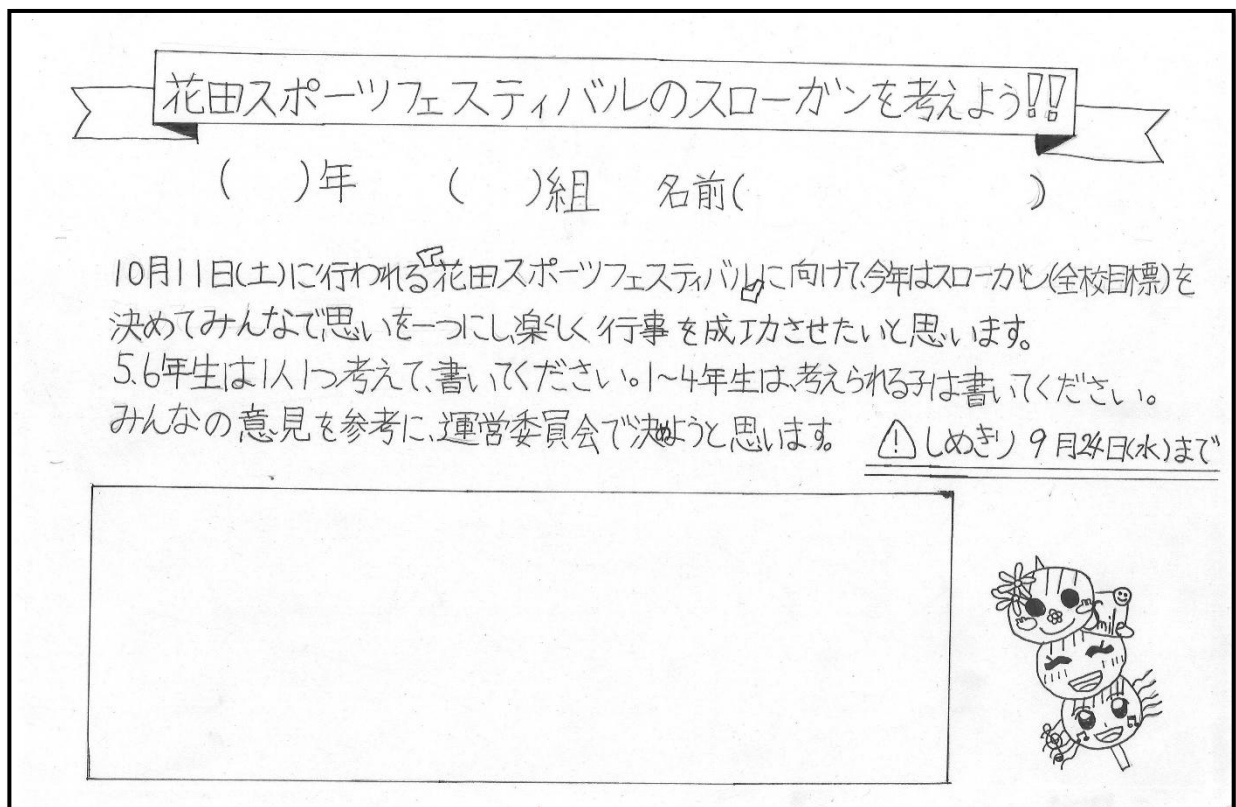 花田スポーツフェスティバルのスローガンを考えよう!!
( )年 ( )組 名前( )
10月11日(土)に行われる『花田スポーツフェスティバル』に向けて、今年はスローガン(全校目標)を
決めてみんなで思いを一つにし、楽しく行事を成功させたいと思います。
5.6年生は1人1つ考えて、書いてください。1〜4年生は、考えられる子は書いてください。
みんなの意見を参考に、運営委員会で決めようと思います。
⚠しめきり 9月24日(水)まで